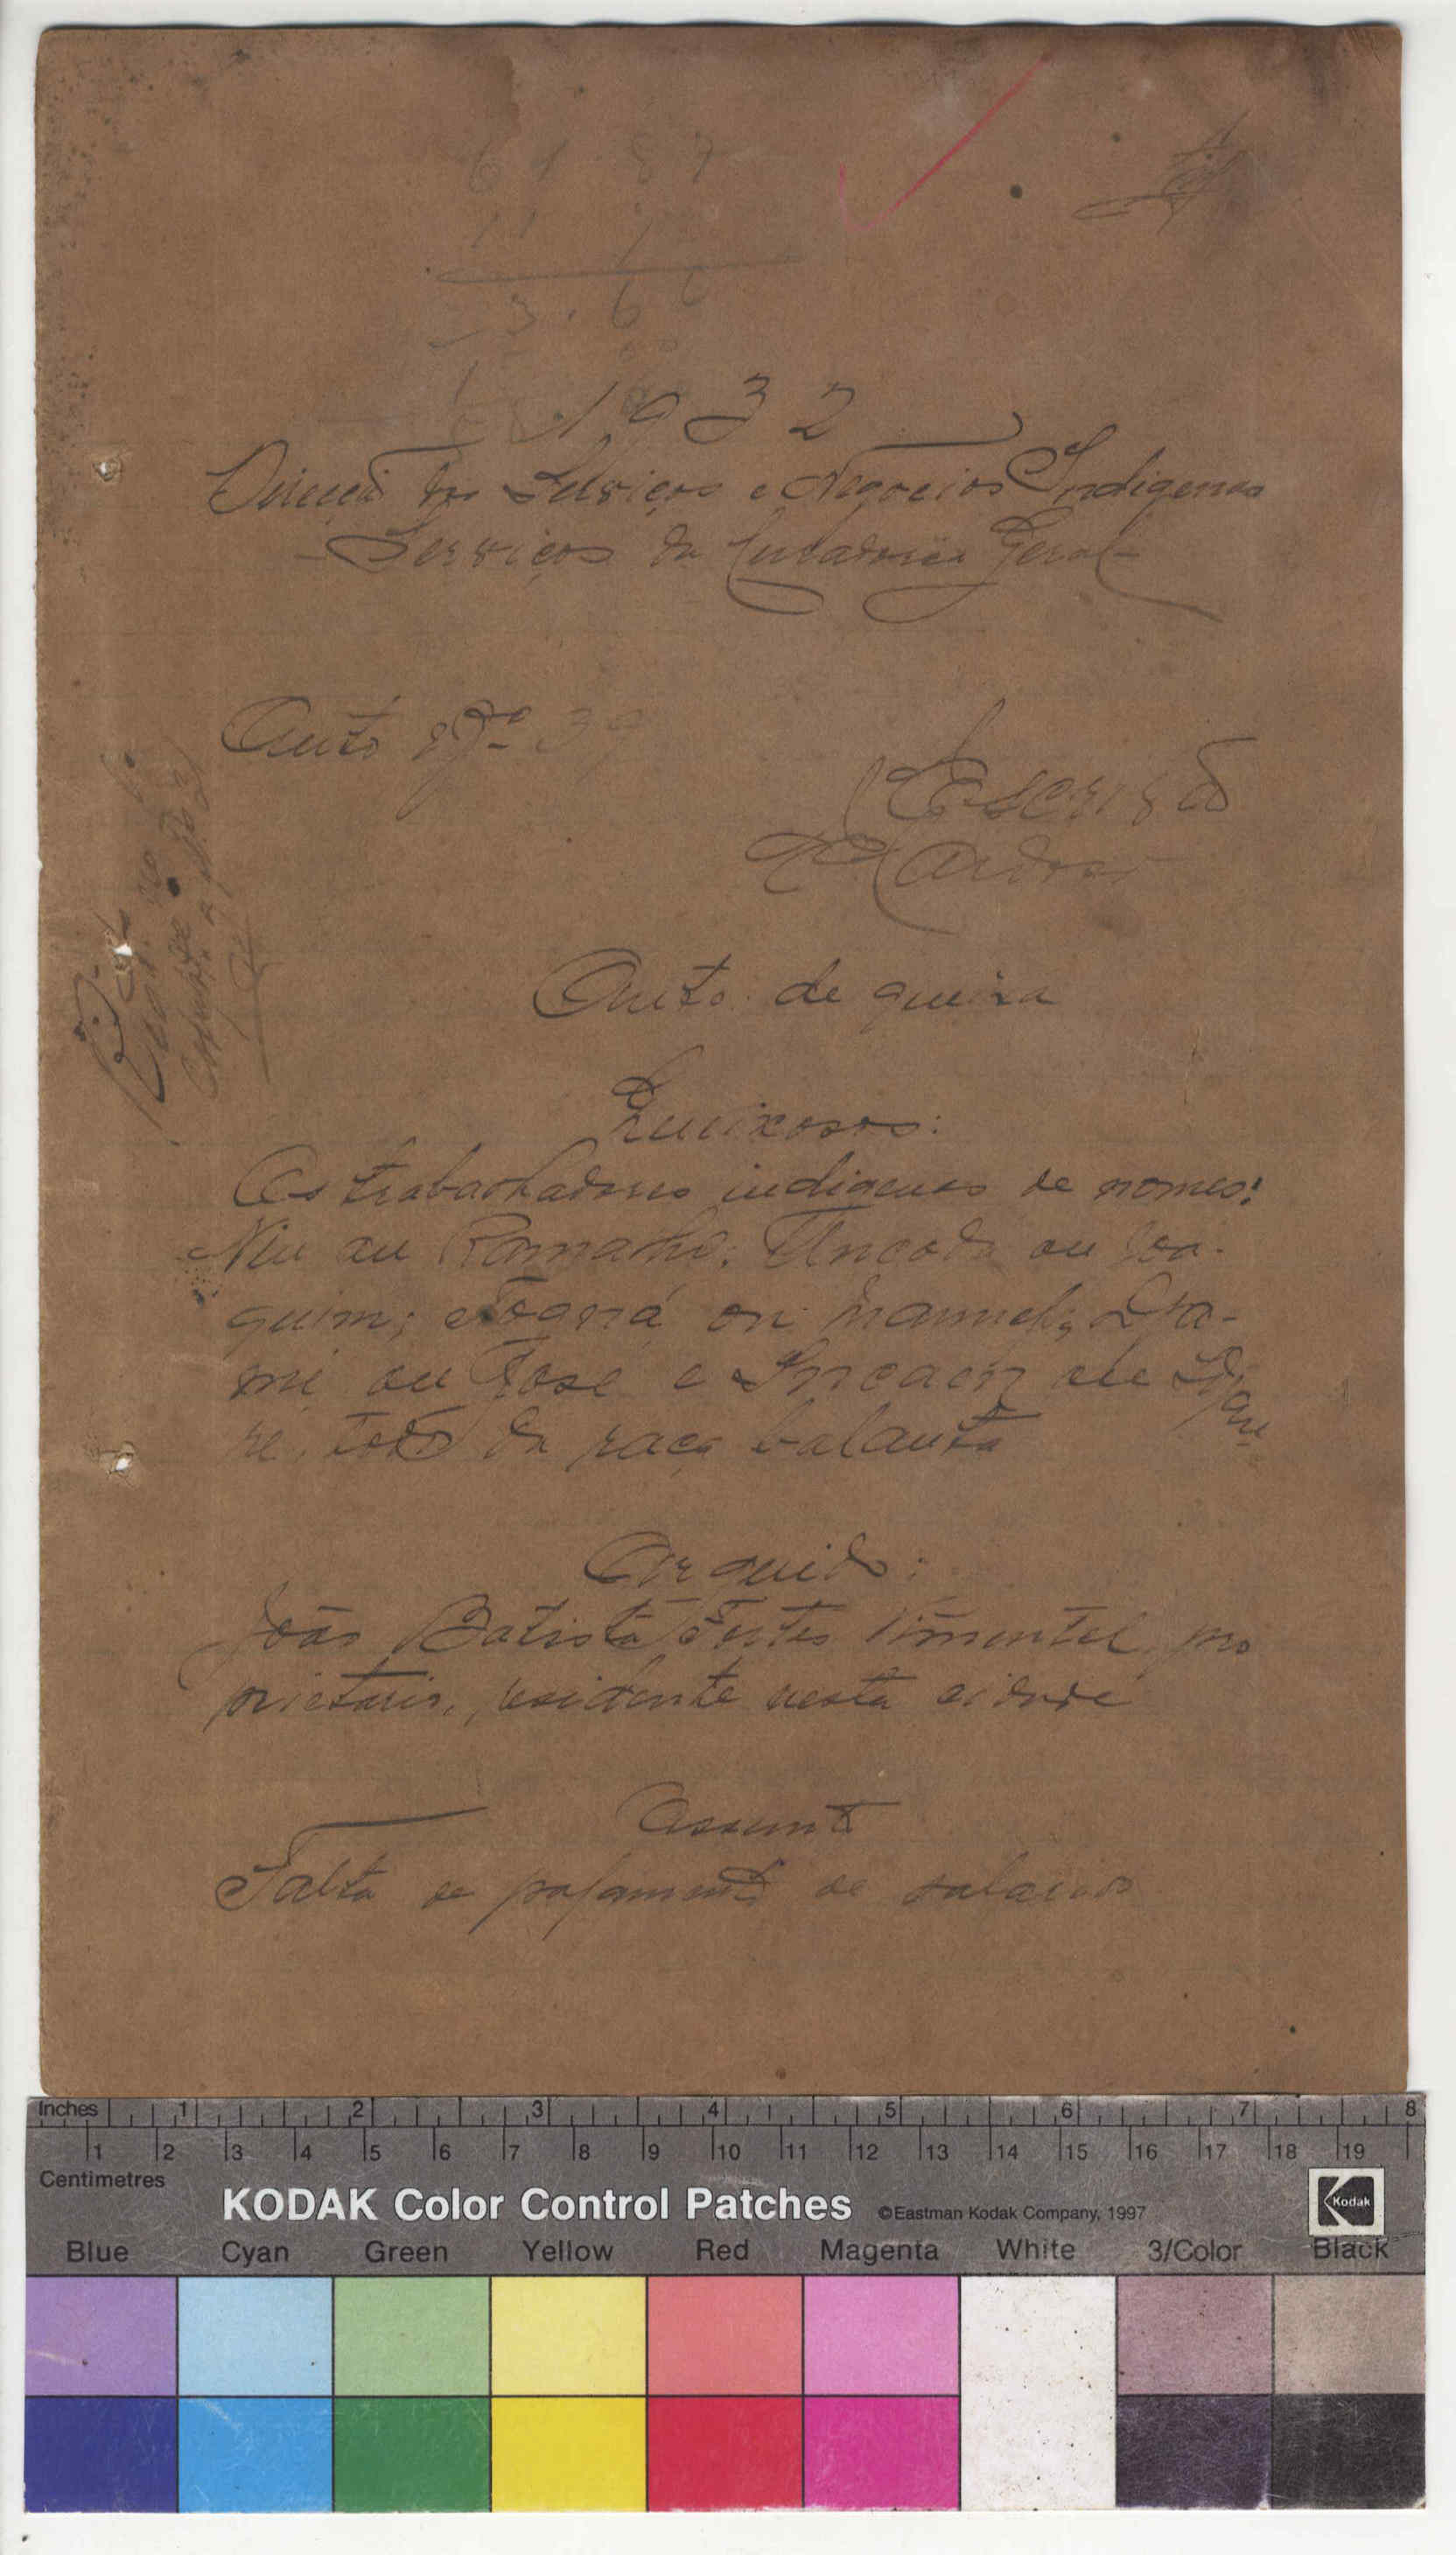 1932
Direcção dos Serviços e Negocios Indigenas
Serviços da Curadoria Geral
Auto Nº 39
O Escrivão
Cardoso
Auto de queixa
Queixosos:
Os trabalhadores indigenas de nomes:
Niu ou Ramalho; Uncoda ou Joa-
quim; ou Manuel;
mi ou José e ou
re, todos da raça balanta
Arguido:
João Batista Fortes Pimentel, pro
prietario, residente nesta cidade
Assunto
Falta de pagamento de salarios
Inches 1 2 3 4 5 6 7 8
1 2 3 4 5 6 7 8 9 10 11 12 13 14 15 16 17 18 19
Centimetres
KODAK Color Control Patches ©Eastman Kodak Company, 1997 Kodak
Blue Cyan Green Yellow Red Magenta White 3/Color Black